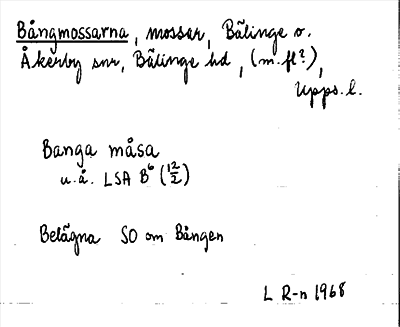 Bångmossarna, mossar, Bälinge o.
Åkerby snr, Bälinge hd, (m. fl?),
Upps. l.
Banga måsa
u.å. LSA B⁶ (12/2)
Belägna SO om Bången
L R-n 1968